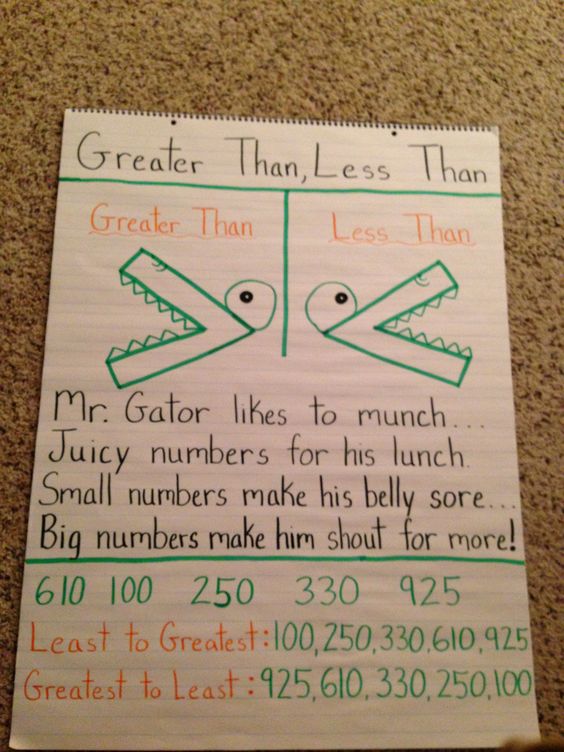 Greater Than, Less Than
Greater Than
Less Than
Mr. Gator likes to munch...
Juicy numbers for his lunch.
Small numbers make his belly sore...
Big numbers make him shout for more!
610 100 250 330 925
Least to Greatest: 100, 250, 330, 610, 925
Greatest to Least: 925, 610, 330, 250, 100